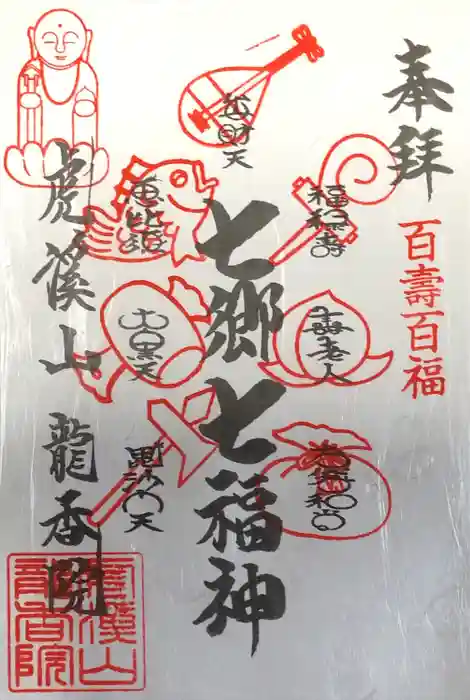 奉拝
百壽百福
弁財天
福禄壽
恵比須
壽老人
大黒天
布袋和尚
毘沙門天
七郷七福神
虎溪山 龍香院
虎溪山
龍香院